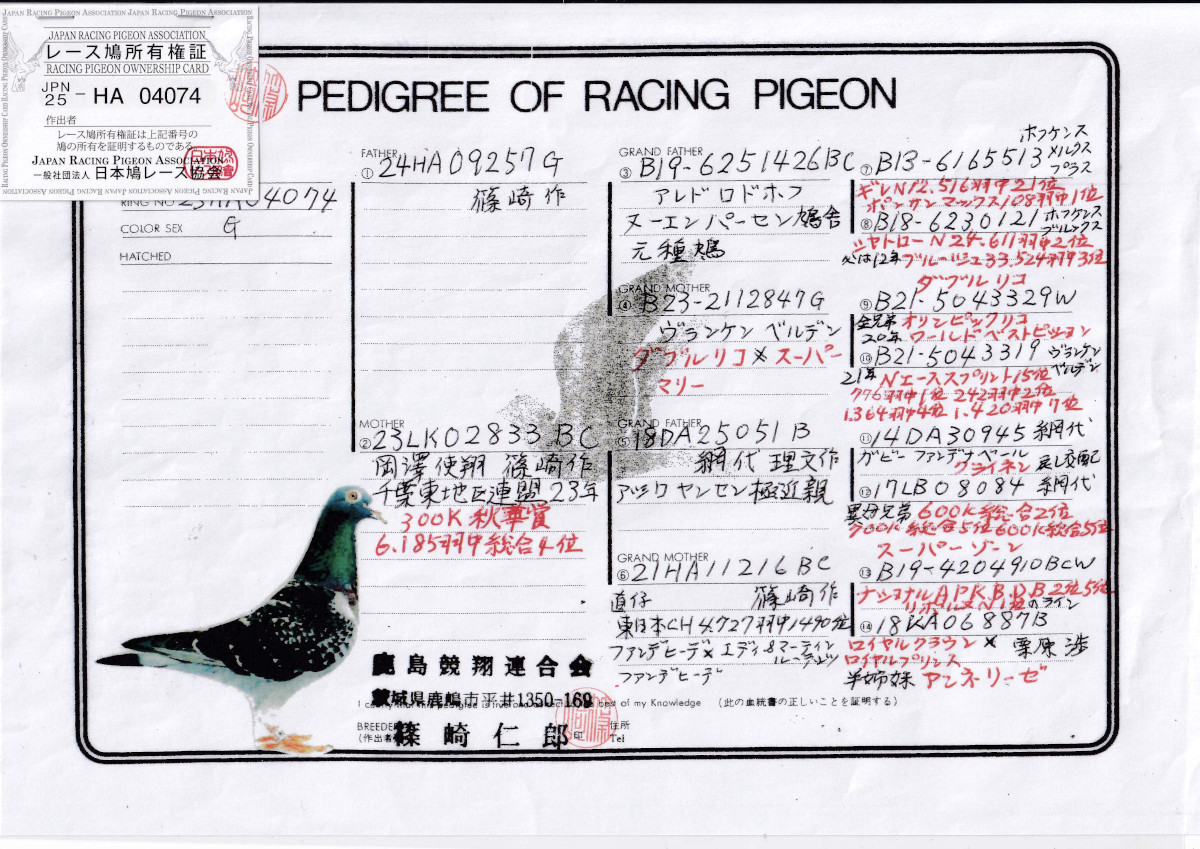 JAPAN RACING PIGEON ASSOCIATION
レース鳩所有権証
RACING PIGEON OWNERSHIP CARD
JPN
25 - HA 04074
作出者
レース鳩所有権証は上記番号の
鳩の所有を証明するものである
JAPAN RACING PIGEON ASSOCIATION
一般社団法人 日本鳩レース協会
PEDIGREE OF RACING PIGEON
RING NO 25HA04074
COLOR SEX G
HATCHED
FATHER
①24HA09257G
篠崎作
MOTHER
②23LK02833 BC
岡澤使翔 篠崎作
千葉東地区連盟23年
300K秋華賞
6.185羽中総合4位
GRAND FATHER
③B19-6251426BC
アレドロドホフ
ヌーエンパーセン鳩舎
元種鳩
GRAND MOTHER
④B23-2112847G
ヴランケン ベルデン
ダブルリコ×スーパー
マリー
GRAND FATHER
⑤18DA25051B
網代理文作
アツワヤンセン極近親
GRAND MOTHER
⑥21HA11216BC
直仔 篠崎作
東日本CH4.727羽中1490位
ファンデヒーデ×エディ&マーティン
ファンデヒーデ
ホフケンス
メルクス
プラス
⑦B13-6165513
ギレN12.516羽中21位
ポンサンマックス108羽中1位
⑧B18-6230121 ホフケンス
ブルックス
シャトローN24.611羽中2位
ブルージュ33.524羽中3位
ダブルリコ
⑨B21-5043329W
全兄弟オリンピックリコ
20年ワールドベストピジョン
⑩B21-5043319 ヴランケン
ベルデン
21年Nエーススプリント15位
776羽中1位 242羽中2位
1.364羽中4位 1.420羽中7位
⑪14DA30945 網代
ガビー ファンデナベール
クライネン 戻し交配
⑫17LB08084 網代
異母兄弟600K総合2位
700K総合5位600K総合5位
スーパーゾーン
⑬B19-4204910BCW
ナショナルA.P.K.B.D.B2位5位
N1位のライン
⑭18KA06887B
ロイヤルクラウン× 栗原渉
ロイヤルプリンス
半姉妹 アンネリーゼ
鹿島競翔連合会
茨城県鹿嶋市平井1350-169
best of my Knowledge (此の血統書の正しいことを証明する)
BREEDER
(作出者) 篠崎仁郎 印
住所
Tel